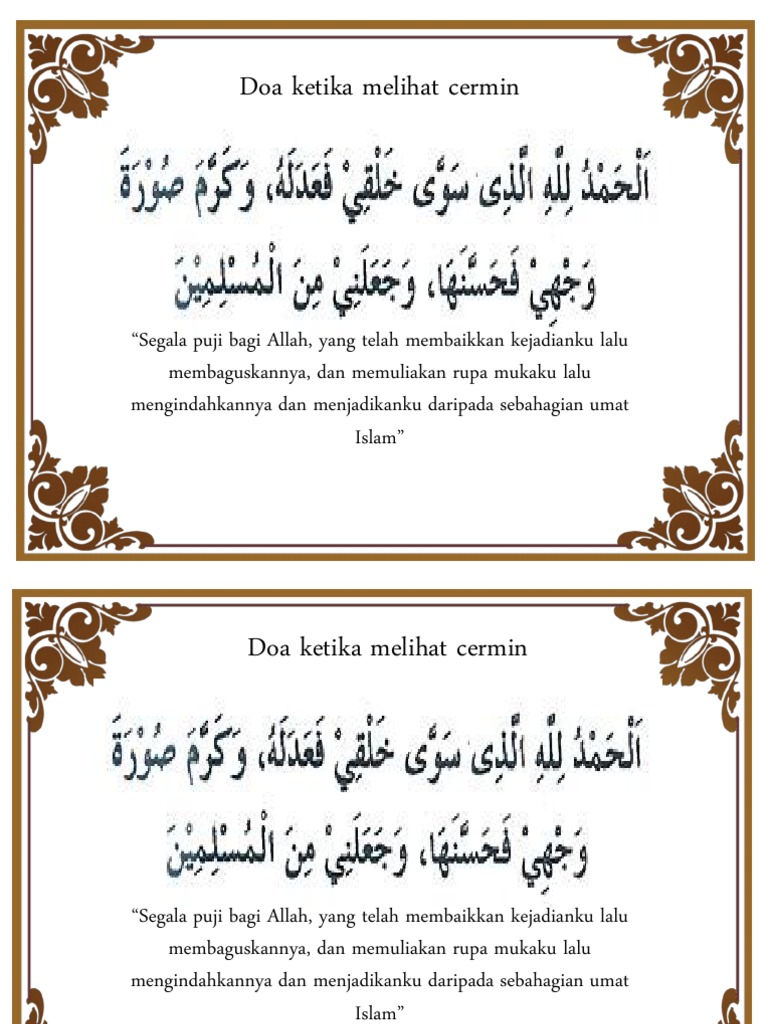 Doa ketika melihat cermin
اَلْحَمْدُ لِلَّهِ الَّذِى سَوَّى خَلْقِيْ فَعَدَلَهُ، وَكَرَّمَ صُوْرَةَ
وَجْهِيْ فَحَسَّنَهَا، وَجَعَلَنِيْ مِنَ الْمُسْلِمِيْنَ
“Segala puji bagi Allah, yang telah membaikkan kejadianku lalu
membaguskannya, dan memuliakan rupa mukaku lalu
mengindahkannya dan menjadikanku daripada sebahagian umat
Islam”
Doa ketika melihat cermin
اَلْحَمْدُ لِلَّهِ الَّذِى سَوَّى خَلْقِيْ فَعَدَلَهُ، وَكَرَّمَ صُوْرَةَ
وَجْهِيْ فَحَسَّنَهَا، وَجَعَلَنِيْ مِنَ الْمُسْلِمِيْنَ
“Segala puji bagi Allah, yang telah membaikkan kejadianku lalu
membaguskannya, dan memuliakan rupa mukaku lalu
mengindahkannya dan menjadikanku daripada sebahagian umat
Islam”